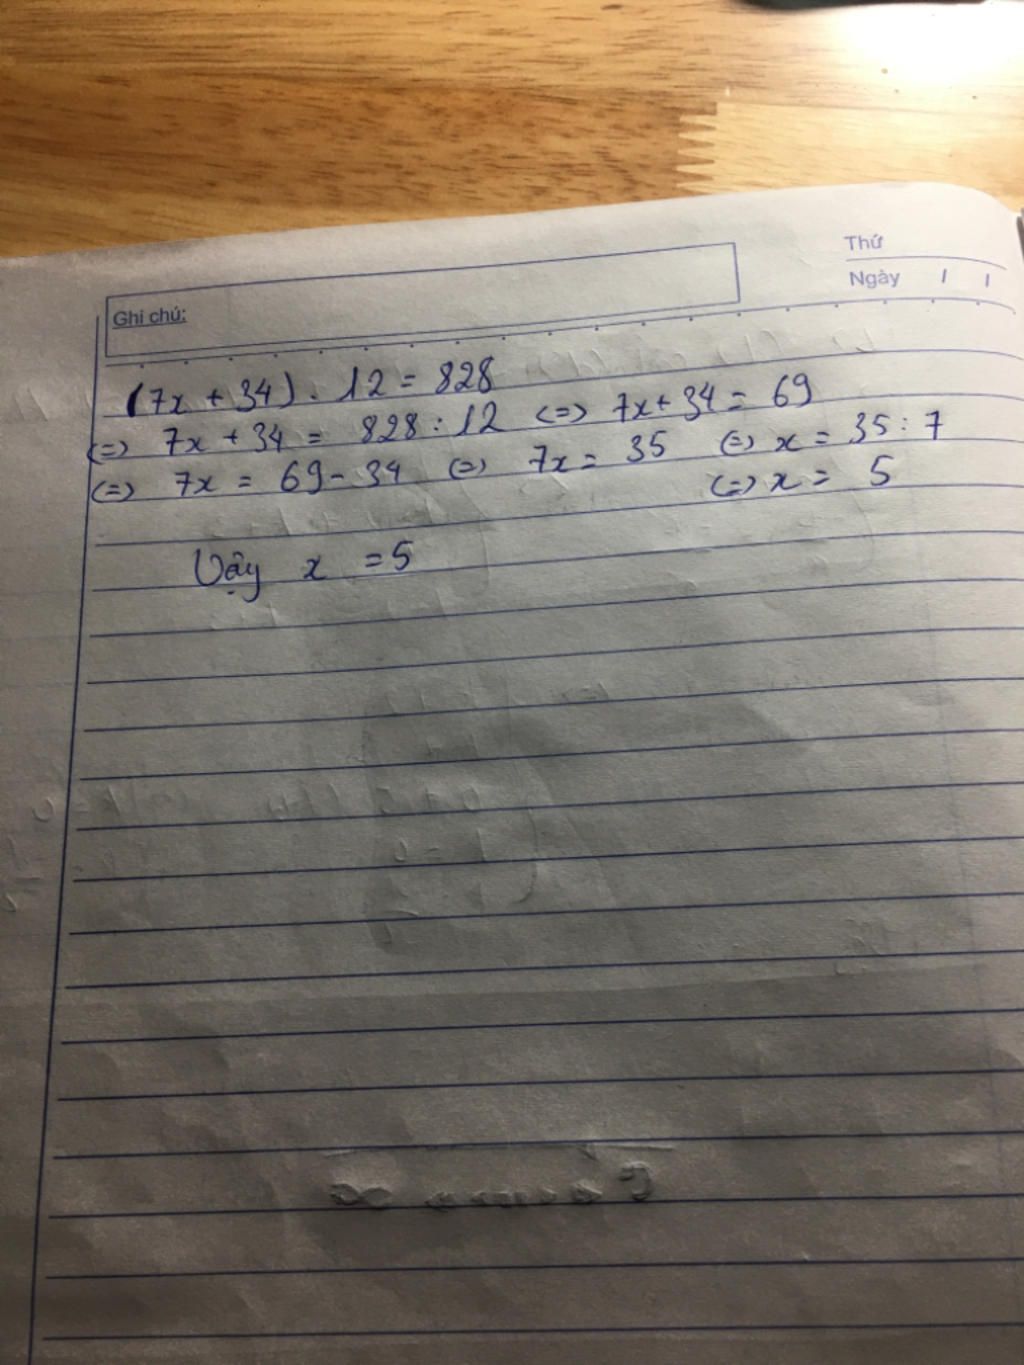 Thứ
Ngày / /
Ghi chú:
(7x + 34) . 12 = 828
(=) 7x + 34 = 828 : 12 (=) 7x + 34 = 69
(=) 7x = 69 - 34 (=) 7x = 35 (=) x = 35 : 7
(=) x = 5
Vậy x = 5